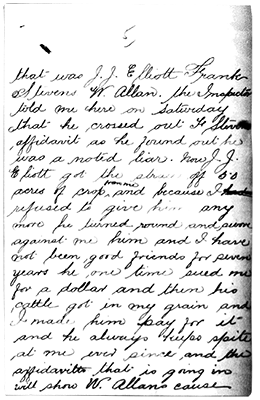 5
that was J. J. Elliott Frank
Stevens W. Allan. the Inspector
told me here on Saturday
that he crossed out F Stevens
affidavit as he found out he
was a noted liar. Now J. J.
Elliott got the straw of 30
acres of crop from me and because I
refused to give him any
more he turned round and swore
against me him and I have
not been good friends for seven
years he one time sued me
for a dollar and then his
cattle got in my grain and
I made him pay for it
and he always keeps spite
at me ever since and the
affidavits that is going in
will show W. Allans cause